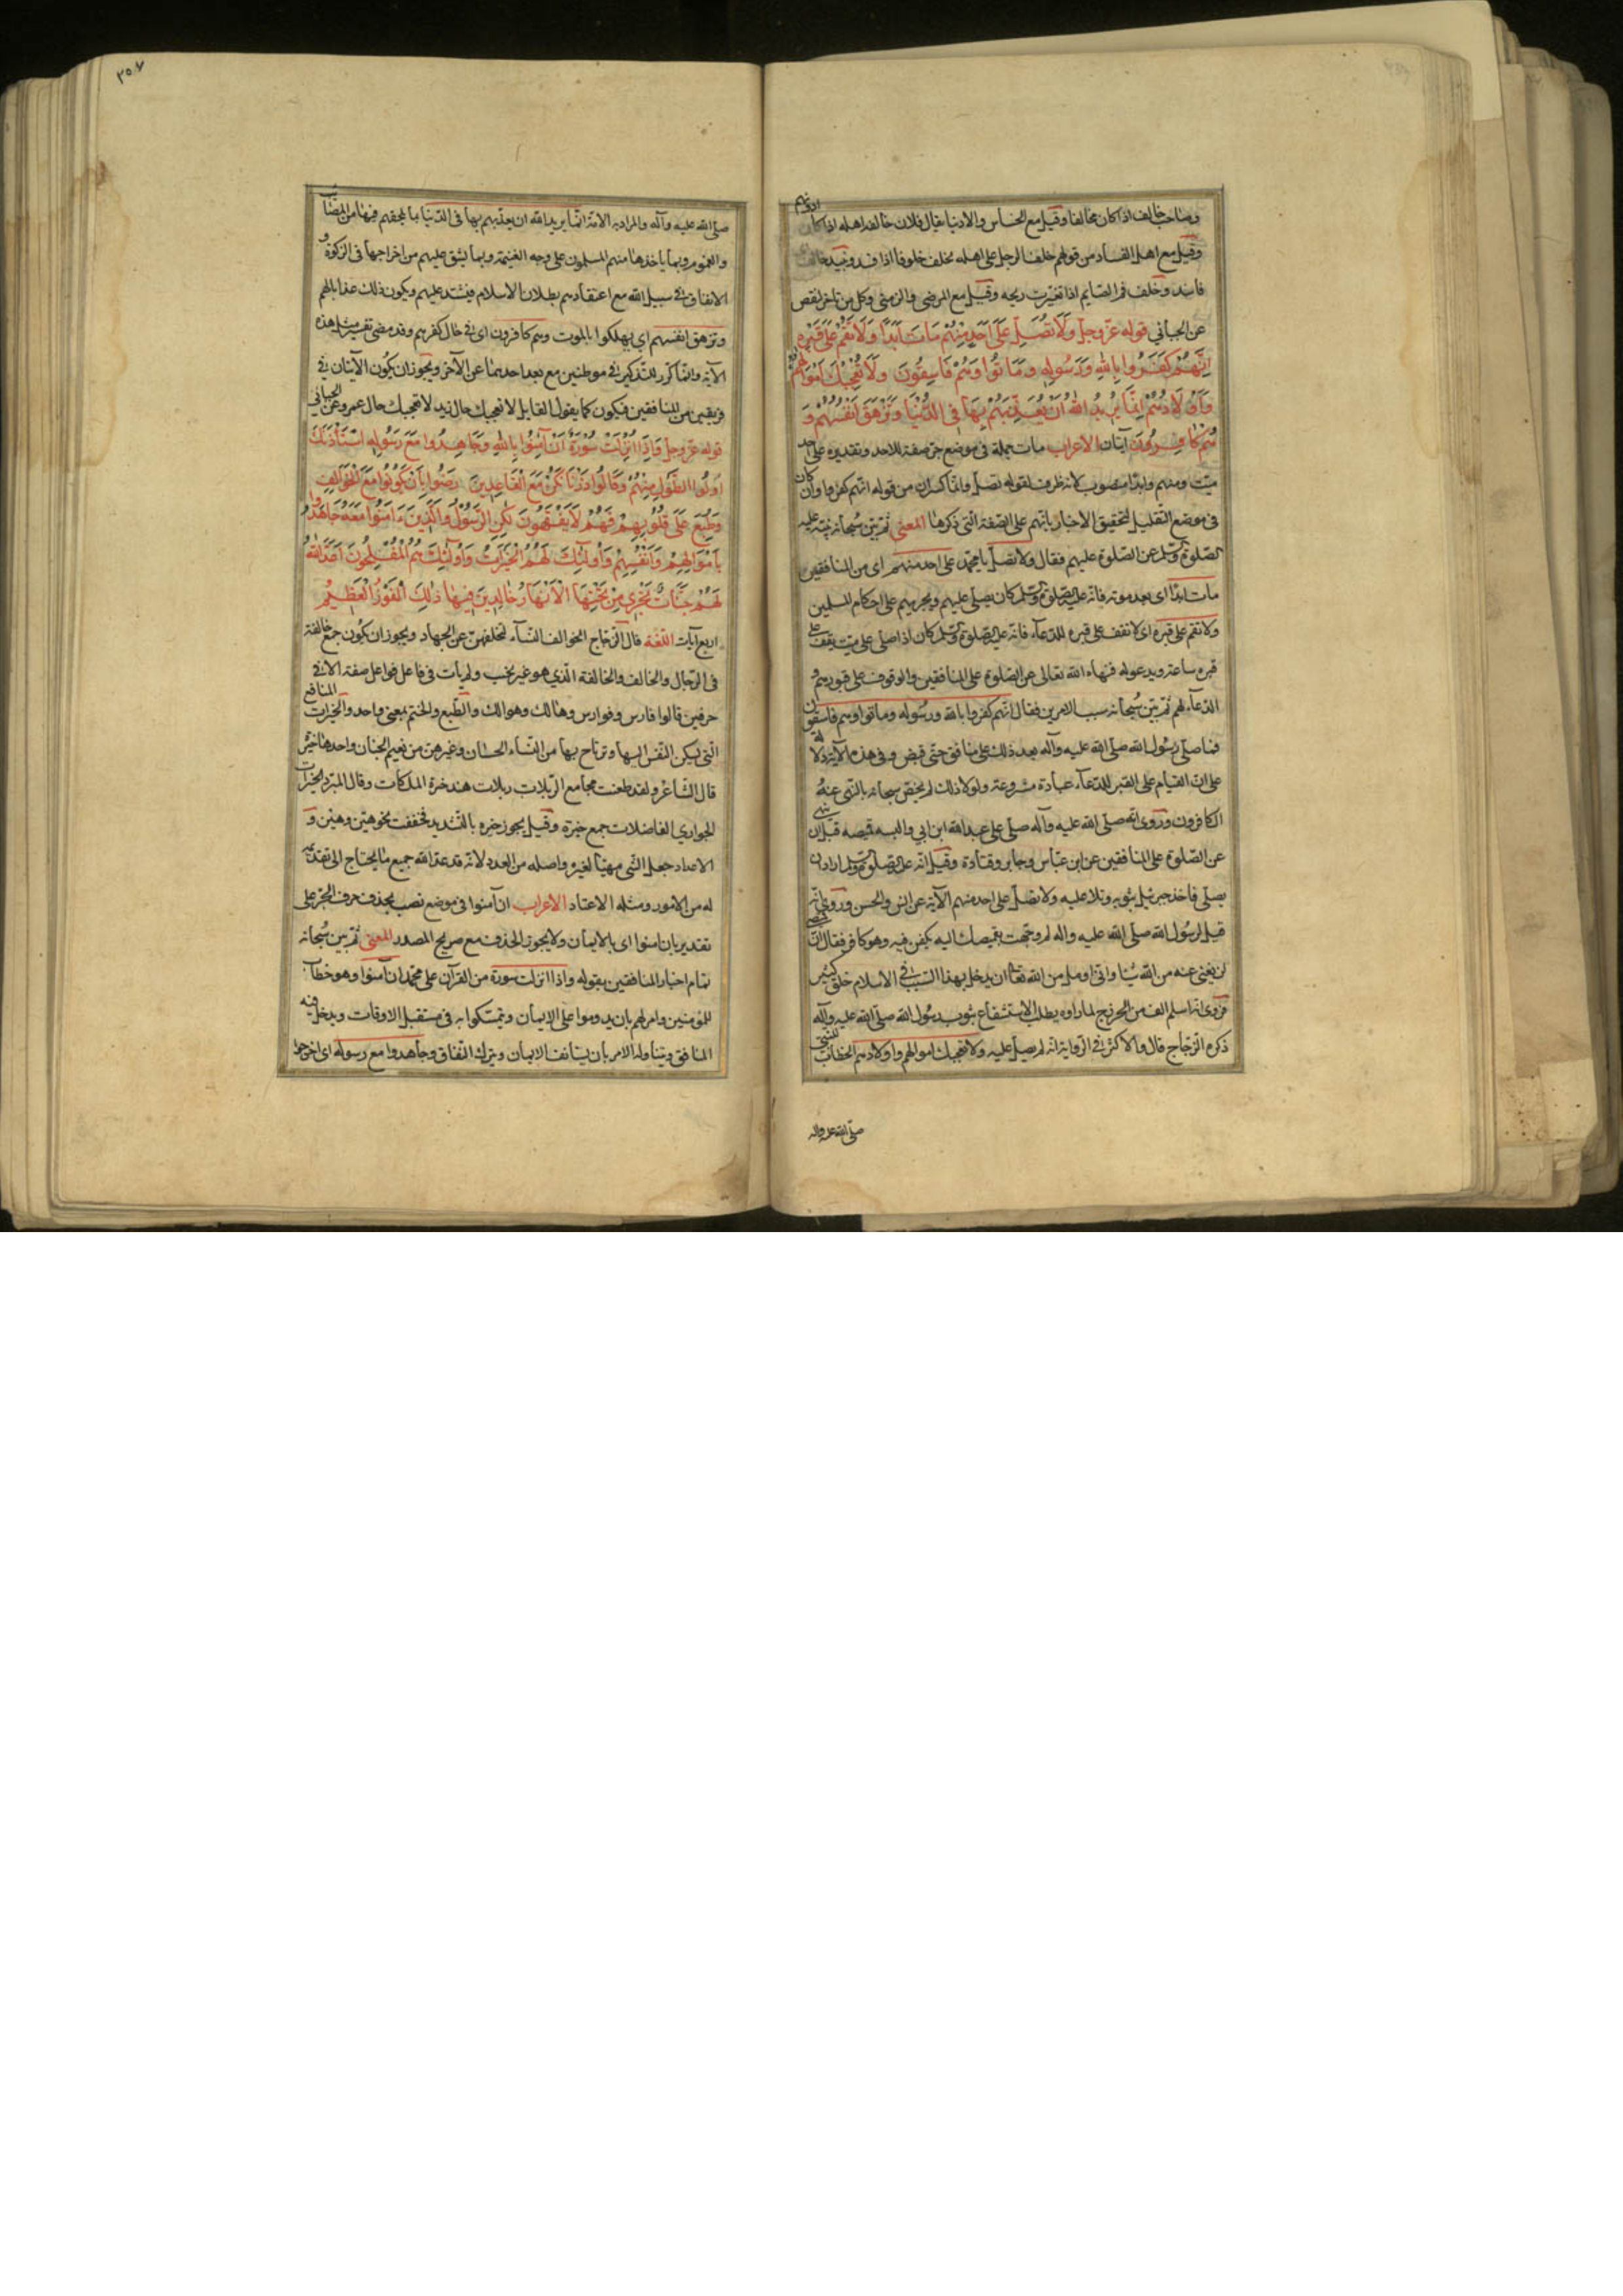 وصاحب خالف اذا كان مخالفا وقيل مع الخساس والادنيا يقال فلان خالفه اهله اذا كان ادونهم
وقيل مع اهل الفساد من قولهم خلف الرجل على اهله يخلف خلوفا اذا فسد ونبيذ خالف اى
فاسد وخلف فم الصايم اذا تغيرت ريحه وقيل مع المرضى والزمنى وكل من تاخر لنقص
عن الجبائي قوله عز وجل وَلَا تُصَلِّ عَلَى اَحَدٍ مِنْهُمْ مَاتَ اَبَدًا وَلَا تَقُمْ عَلَى قَبْرِهِ
اِنَّهُمْ كَفَرُوا بِاللهِ وَرَسُولِهِ وَمَاتُوا وَهُمْ فَاسِقُونَ وَلَا تُعْجِبْكَ اَمْوَالُهُمْ
وَاَوْلَادُهُمْ اِنَّمَا يُرِيدُ اللهُ اَنْ يُعَذِّبَهُمْ بِهَا فِي الدُّنْيَا وَتَزْهَقَ اَنْفُسُهُمْ وَ
هُمْ كَافِرُونَ آيتان الاعراب مات جملة فى موضع جر صفة للاحد وتقديره على احد
ميت ومنهم وابدا منصوب لانه ظرف لقوله تصل وانما كسر ان من قوله انهم كفروا وان كان
فى موضع التقليل لتحقيق الاخبار بانهم على الصفة التى ذكرها المعنى ثم بين سبحانه نبيه عليه
الصلوة والسلم عن الصلوة عليهم فقال ولا تصل يا محمد على احد منهم اى من المنافقين
مات ابدا اى بعد موته فانه عليه الصلوة والسلم كان يصلى عليهم ويجريهم على احكام المسلمين
ولا تقم على قبره اى لا تقف على قبره للدعآء فانه عليه الصلوة والسلم كان اذا صلى على ميت يقف على
قبره ساعة ويدعو له فنهاه الله تعالى عن الصلوة على المنافقين والوقوف على قبورهم و
الدعآء لهم ثم بين سبحانه سبب الامرين فقال انهم كفروا بالله ورسوله وماتوا وهم فاسقون
فما صلى رسول الله صلى الله عليه وآله بعد ذلك على منافق حتى قبض وفى هذه الآية دلالة
على ان القيام على القبر للدعآء عبادة مشروعة ولولا ذلك لم يخص سبحانه بالنهى عنه
الكافرون وروى انه صلى الله عليه وآله صلى على عبد الله ابن ابي والبسه قميصه قبل ان ينهى
عن الصلوة على المنافقين عن ابن عباس وجابر وقتادة وقيل انه عليه الصلوة والسلم اراد ان
يصلى فاخذ جبرئيل بثوبه وتلا عليه ولا تصل على احد منهم الآية عن انس والحسن وروى انه
قيل لرسول الله صلى الله عليه واله لم وجهت بقميصك اليه يكفن فيه وهو كافر فقال ان قميصى
لن يغنى عنه من الله شيئا وانى اومل من الله تعالى ان يدخل بهذا السبب فى الاسلام خلق كثير
فروى انه اسلم الف من الخزرج لما راوه يطلب الاستشفاع بثوب رسول الله صلى الله عليه وآله
ذكره الزجاج قال والاكثر فى الرواية انه لم يصل عليه ولا تعجبك اموالهم واولادهم الخطاب للنبى
صلى الله عليه واله
٣٥٧
صلى الله عليه وآله والمراد به الامة انما يريد الله ان يعذبهم بها فى الدنيا بما يلحقهم فيها من المصائب
والغموم وبما ياخذها منهم المسلمون على وجه الغنيمة وبما يشق عليهم من اخراجها فى الزكوة و
الانفاق فى سبيل الله مع اعتقادهم بطلان الاسلام فيشتد عليهم ويكون ذلك عذابا لهم
وتزهق انفسهم اى يهلكوا بالموت وهم كافرون اى فى حال كفرهم وقد مضى تفسير مثل هذه
الآية وانما كرر للتذكير فى موطنين مع بعد احدهما عن الآخر ويجوز ان يكون الآيتان فى
فريقين من المنافقين فيكون كما يقول القايل لا تعجبك حال زيد لا تعجبك حال عمرو عن الجبائي
قوله عز وجل وَاِذَا اُنْزِلَتْ سُورَةٌ اَنْ آمِنُوا بِاللهِ وَجَاهِدُوا مَعَ رَسُولِهِ اسْتَأْذَنَكَ
اُولُوا الطَّوْلِ مِنْهُمْ وَقَالُوا ذَرْنَا نَكُنْ مَعَ الْقَاعِدِينَ رَضُوا بِاَنْ يَكُونُوا مَعَ الْخَوَالِفِ
وَطُبِعَ عَلَى قُلُوبِهِمْ فَهُمْ لَا يَفْقَهُونَ لٰكِنِ الرَّسُولُ وَالَّذِينَ ءَامَنُوا مَعَهُ جَاهَدُوا
بِاَمْوَالِهِمْ وَاَنْفُسِهِمْ وَاُولٰئِكَ لَهُمُ الْخَيْرَاتُ وَاُولٰئِكَ هُمُ الْمُفْلِحُونَ اَعَدَّ اللهُ
لَهُمْ جَنَّاتٍ تَجْرِي مِنْ تَحْتِهَا الْاَنْهَارُ خَالِدِينَ فِيهَا ذٰلِكَ الْفَوْزُ الْعَظِيمُ
اربع آيات اللغة قال الزجاج الخوالف النسآء لتخلفهن عن الجهاد ويجوز ان يكون جمع خالفة
فى الرجال والخالف والخالفة الذي هو غير نجيب ولم يأت فى فاعل فواعل صفة الا فى
حرفين قالوا فارس وفوارس وهالك وهوالك والطبع والختم بمعنى واحد والخيرات المنافع
التى يسكن النفس اليها وترتاح بها من النساء الحسان وغيرهن من نعيم الجنان واحدها خيرة
قال الشاعر ولقد طعنت مجامع الربلات ربلات هند خيرة الملكات وقال المبرد الخيرات
الجواري الفاضلات جمع خيرة وقيل يجوز خيره بالتشديد فخففت نحو هين وهين و
الاعداد جعل الشى مهيئا لغيره واصله من العدد لانه قد عد الله جميع ما يحتاج الى تقديمه
له من الامور ومثله الاعتاد الاعراب ان آمنوا فى موضع نصب بحذف حرف الجر على
تقدير بان امنوا اى بالايمان ولا يجوز الحذف مع صريح المصدر المعنى ثم بين سبحانه
تمام اخبار المنافقين بقوله واذا انزلت سورة من القرآن على محمد ان آمنوا وهو خطاب
للمؤمنين وامر لهم بان يدوموا على الايمان ويتمسكوا به فى مستقبل الاوقات ويدخل فيه
المنافق ويتناوله الامر بان يستانف الايمان ويترك النفاق وجاهدوا مع رسوله اى اخرجوا